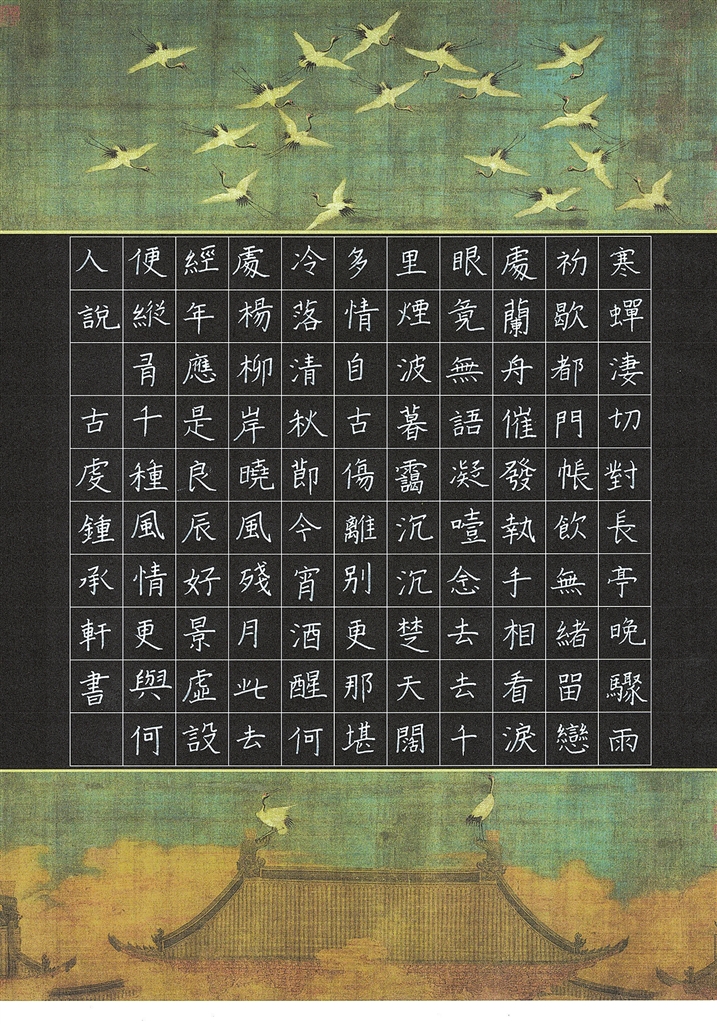 寒蟬淒切對長亭晚驟雨
初歇都門帳飲無緒留戀
處蘭舟催發執手相看淚
眼竟無語凝噎念去去千
里煙波暮靄沉沉楚天闊
多情自古傷離別更那堪
冷落清秋節今宵酒醒何
處楊柳岸曉風殘月此去
經年應是良辰好景虛設
便縱有千種風情更與何
人說 古虔鍾承軒書